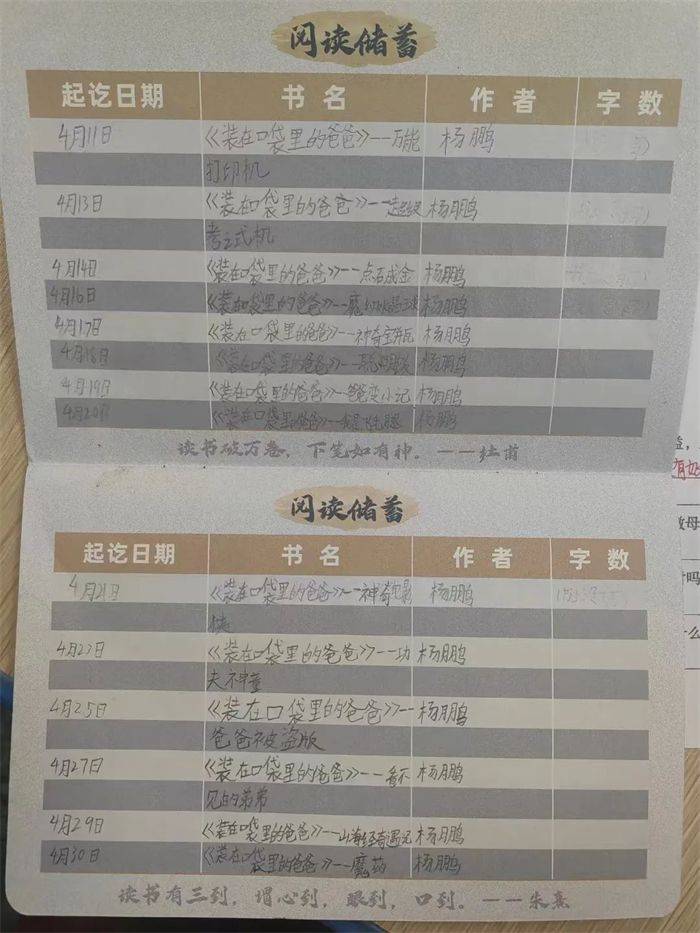 阅读储蓄
起讫日期 书名 作者 字数
4月11日 《装在口袋里的爸爸》--万能 杨鹏
打印机
4月13日 《装在口袋里的爸爸》--超级 杨鹏
考试机
4月14日 《装在口袋里的爸爸》--点石成金 杨鹏
4月16日 《装在口袋里的爸爸》-- 杨鹏
4月17日 《装在口袋里的爸爸》--神奇宝瓶 杨鹏
4月18日 《装在口袋里的爸爸》-- 杨鹏
4月19日 《装在口袋里的爸爸》--爸爸变小记 杨鹏
4月20日 《装在口袋里的爸爸》--我是飞毛腿 杨鹏
读书破万卷，下笔如有神。——杜甫
阅读储蓄
起讫日期 书名 作者 字数
4月21日 《装在口袋里的爸爸》--神奇电影 杨鹏
4月23日 《装在口袋里的爸爸》--功 杨鹏
夫神童
4月25日 《装在口袋里的爸爸》-- 杨鹏
爸爸被盗版
4月27日 《装在口袋里的爸爸》--看不 杨鹏
见的弟弟
4月29日 《装在口袋里的爸爸》--山海经奇遇记 杨鹏
4月30日 《装在口袋里的爸爸》--魔药 杨鹏
读书有三到，谓心到，眼到，口到。——朱熹